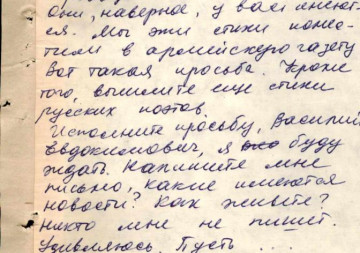 они, наверное, у вас имеют-
ся. Мы эти стихи помес-
тим в армейскую газету
Вот такая просьба. Кроме
того, вышлите еще стихи
русских поэтов.
Исполните просьбу, Василий
Евдокимович, я буду
ждать. Напишите мне
письмо, какие имеются
новости? Как живете?
Никто мне не пишет.
Удивляюсь. Пусть ...